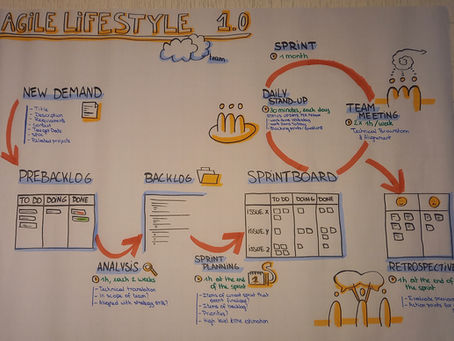 AGILE LIFESTYLE 1.0
team
SPRINT
1 month
NEW DEMAND
- Title
- Description
- Requirements
- Contact
- Target Date
- Related projects
DAILY
STAND-UP
30 minutes, each day
STATUS UPDATE PER PERSON
- work done yesterday
- work done today
TEAM
MEETING
2x 1h/week
Technical Brainstorm
& Alignment
PREBACKLOG
TO DO DOING DONE
BACKLOG
SPRINTBOARD
TO DO DOING DONE
ISSUE X
ISSUE Y
ISSUE Z
ANALYSIS
1h, each 2 weeks
- Technical translation
- In scope of team?
- Aligned with strategy
SPRINT
PLANNING
1h at the end of
the sprint
- Items of current sprint that
- Items of backlog
- Priorities
- High level time estimation
1
RETROSPECTIVE
1h at the end of
the sprint
- Evaluate
- Action points